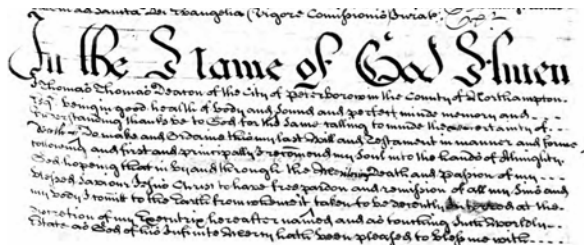 ad Sancta Dei Evangelia (Vigore Comissionis) Jurat. Exr.
In the Name of God Amen
I Thomas Deacon of the City of Peterborow in the County of Northampton
Esq. being in good health of body and sound and perfect minde memory and
Understanding thanks be to God for the same calling to minde the uncertainty of
Death Do make and Ordaine this my last Will and Testament in manner and forme
following and first and principally I recomend my Soul into the hands of Almighty
God hopeing that in by and through the death and passion of my
blessed Saviour Jesus Christ to have free pardon and remission of all my Sins and
my body I comitt to the Earth from whence it taken to be decently Interred at the
discretion of my Executrix hereafter named and as touching such Worldly
Estate as God of his Infinite Mercy hath been pleased to bless me with